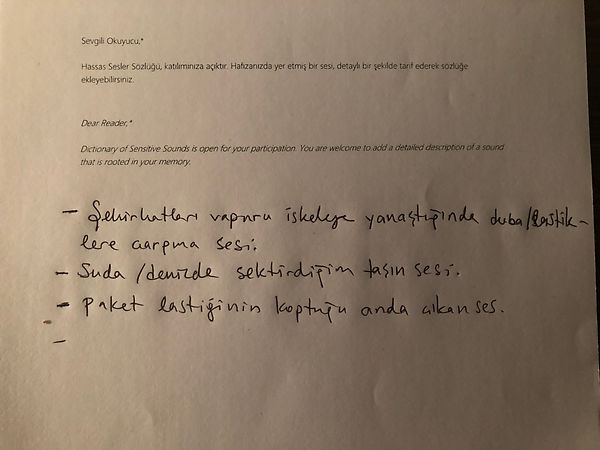 Sevgili Okuyucu,*
Hassas Sesler Sözlüğü, katılımınıza açıktır. Hafızanızda yer etmiş bir sesi, detaylı bir şekilde tarif ederek sözlüğe
ekleyebilirsiniz.
Dear Reader,*
Dictionary of Sensitive Sounds is open for your participation. You are welcome to add a detailed description of a sound
that is rooted in your memory.
- Şehirhatları vapuru iskeleye yanaştığında duba/lastik-
lere çarpma sesi.
- Suda /denizde sektirdiğim taşın sesi.
- Paket lastiğinin koptuğu anda çıkan ses.
-